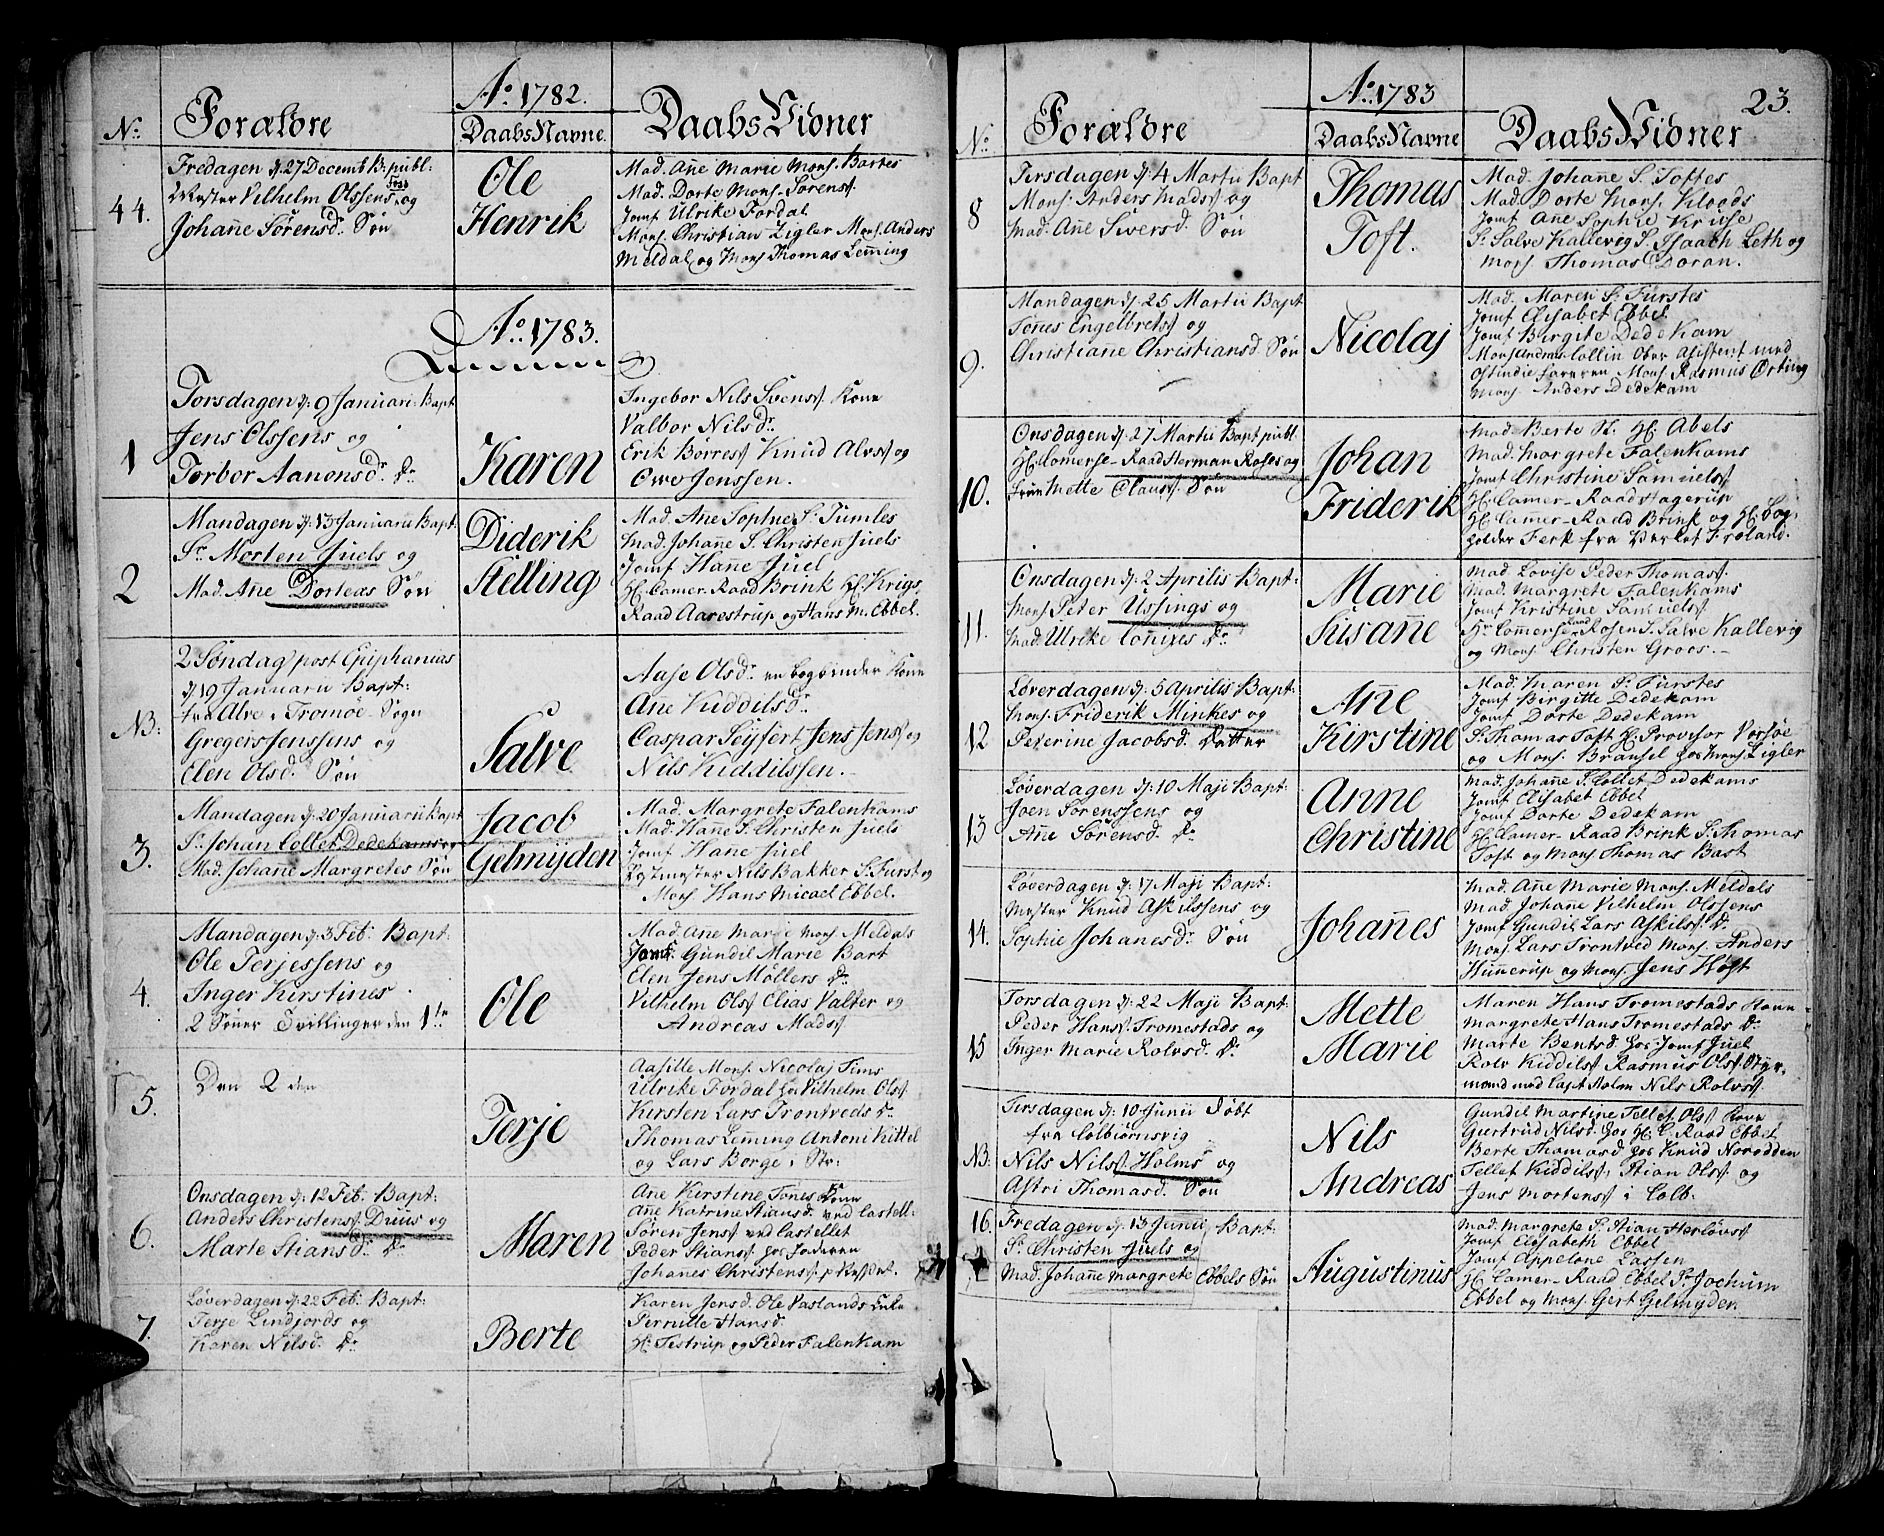 Ao. 1782.
No. Forældre DaabsNavne. Daabs Vidner
44.
Fredagen d. 27 Decemb. B. publ:
Mester Vilhelm Olssens og
Johañe Sørensd. Søn
Ole
Henrik
Mad. Añe Marie Mons. Bartes
Mad. Dorte Mons. Sørens.
Jomf Ulrike Fordal
Mons. Christian Zigler Mons. Anders
Meldal og Mons Thomas Lem̃ing
Ao. 1783.
1
Torsdagen d. 9 Januari Bapt
Jens Olssens og
Torbor Aanonsd. Dr.
Karen
Ingebor Nils Svens. Kone
Valbor Nilsdr.
Erik Børres. Knud Alvs. og
Owe Jenssen.
2
Mandagen d. 13 Januarii Bapt
Sr. Morten Juels og
Mad. Añe Dorteas Søn
Diderik
Stelling
Mad. Añe Sophie S. Tumles
Mad. Johañe S. Christen Juels
Jomf Hañe Juel
H. Camer-Raad Brink H. Krigs
Raad Aarestrup og Hans M. Ebbel.
NB:
2 Søndag post Epiphanias
d. 19 Januarii Bapt:
fra Alve i Tromøe-Sogn
Gregers Jenssens og
Elen Olsd. Søn
Salve
Aase Olsdr. en bogbinder Kone
Ane Kiddilsdr.
Caspar Seyfert Jens Jens. og
Nils Kiddilssen.
3.
Mandagen d. 20 Januarii Bapt
Sr. Johan Collet Dedekams og
Mad. Johañe Margretes Søn
Jacob
Gelmijden
Mad. Margrete Falenkams
Mad. Hañe S. Christen Juels
Jomf Hañe Juel
Postmester Nils Bakker S. Furst og
Mons. Hans Micael Ebbel.
4.
Mandagen d. 3 Feb. Bapt.
Ole Terjessens og
Inger Kirstines.
2 Søner Tvillinger den 1ste
Ole
Mad. Ane Marie Mons. Meldals
Jomf. Gundil Marie Bart
Elen Jens Møllers Dr.
Vilhelm Ols. Elias Valter og
Andreas Mads.
5.
Den 2den
Terje
Aasille Mons. Nicolaj Tims
Ulrike Fordal hos Vilhelm Ols.
Kirsten Lars Tromtveds Dr.
Thomas Lem̃ing Antoni Kittel
og Lars Borge i Str:
6.
Onsdagen d. 12 Feb. Bapt:
Anders Christens. Duus og
Marte Stiansdr. Dr.
Maren
Ane Kirstine Tønes Kone
Añe Katrine Stiansd. ved Castell:
Søren Jens. ved Castellet
Peder Stians. hos Faderen
Johanes Christens.
7.
Løverdagen d. 22 Feb. Bapt:
Terje Lindjords og
Karen Nilsd. Dr.
Berte
Karen Jensd. Ole Vaslands Enke
Pernille Hansd.
H. Testrup og Peder Falenkam
23.
Ao. 1783
No. Forældre DaabsNavne Daabs Vidner
8
Tirsdagen d. 4 Martii Bapt
Mons. Anders Mads. og
Mad. Añe Siversd. Søn
Thomas
Toft.
Mad. Johañe S. Toftes
Mad. Dorte Mons. Kloods
Jomf Añe Sophie Kruse
S. Salve Kallevig S. Isaach Leth og
Mons. Thomas Doran.
9.
Mandagen d. 25 Martii Bapt
Tønes Engelbrets. og
Christiañe Christiansd. Søn
Nicolaj
Mad. Maren S. Fürstes
Jomf Elisabet Ebbel
Jomf Birgite Dedekam
Mons Andreas Collin Ober Assistent med
Ostindiefareren Mons. Rasmus Ørting
Mons. Anders Dedekam
10.
Onsdagen d. 27 Martii Bapt publ.
H. Comerse-Raad Herman Roses og
Frue Mette Claus. Søn
Johan
Friderik
Mad. Berte H. Abels
Mad. Margrete Falenkams
Jomf Christine Samuels.
H. Camer-Raad Hagerup
H. Cam̃er-Raad Brink og H. Bog-
holder Ferk fra Verket Froland.
11.
Onsdagen d. 2 Aprilis Bapt:
Mons Peter Ussings og
Mad. Ulrike Coñixes Dr.
Marie
Susañe
Mad Lovise Peder Thomas.
Mad. Margrete Falenkams
Jomf Kristine Samuels.
Hr Com̃erse Raad Rosen S. Salve Kallevig
og Mons. Christen Groos.
12
Løverdagen d. 5 Aprilis Bapt:
Mons. Friderik Minkes og
Peterine Jacobsd. Datter
Añe
Kirstine
Mad. Maren S. Fürstes
Jomf Birgitte Dedekam
Jomf Dorte Dedekam
S. Thomas Toft H. Provisor Vorsøe
og Mons. Bransel hos Mons. Zigler
13
Løverdagen d. 10 Maji Bapt:
Joen Sørenssens og
Añe Sørensd. Dr.
Anne
Christine
Mad. Johañe S. Collet Dedekams
Jomf Elisabet Ebbel
Jomf Dorte Dedekam
H. Camer-Raad Brink S. Thomas
Toft og Mons. Thomas Bast
14.
Løverdagen d. 17 Maji Bapt:
Mester Knud Askilssens og
Sophie Johanesdr. Søn
Johañes
Mad. Añe Marie Mons. Meldals
Mad. Johañe Vilhelm Olssens
Jomf Gundil Lars Askils. Dr.
Mons. Lars Tromtved Mons. Anders
Huñerup og Mons. Jens Høst
15
Torsdagen d. 22 Maji Bapt:
Peder Hans. Tromestads og
Inger Marie Rolvsd. Dr.
Mette
Marie
Maren Hans Tromestads Kone
Margrete Hans Tromestads Dr.
Marte Bentsd. hos Jomf Juel
Rolv Kiddils. Rasmus Ols. Styr-
mand med Capt Holm Nils Rolvs.
NB:
Tirsdagen d. 10 Junii Døbt
fra Colbiørnsvig
Nils Nils. Holms og
Astri Thomasd. Søn
Nils
Andreas
Gundil Martine Tellef Ols. Kone
Giertrud Nilsd. hos H. C. Raad Ebbel
Berte Thomasd. hos Knud Norodden
Tellef Kiddils. Stian Ols. og
Jens Mortens. i Colb.
16.
Fredagen d. 13 Junii Bapt.
Sr. Christen Juels og
Mad. Johañe Margrete Ebbels Søn
Augustinus
Mad. Margrete S. Stian Herløvs.
Jomf Elisabeth Ebbel
Jomf Appelone Lassen
H. Camer-Raad Ebbel Sr Jochum
Ebbel og Mons. Gert Gelmyden